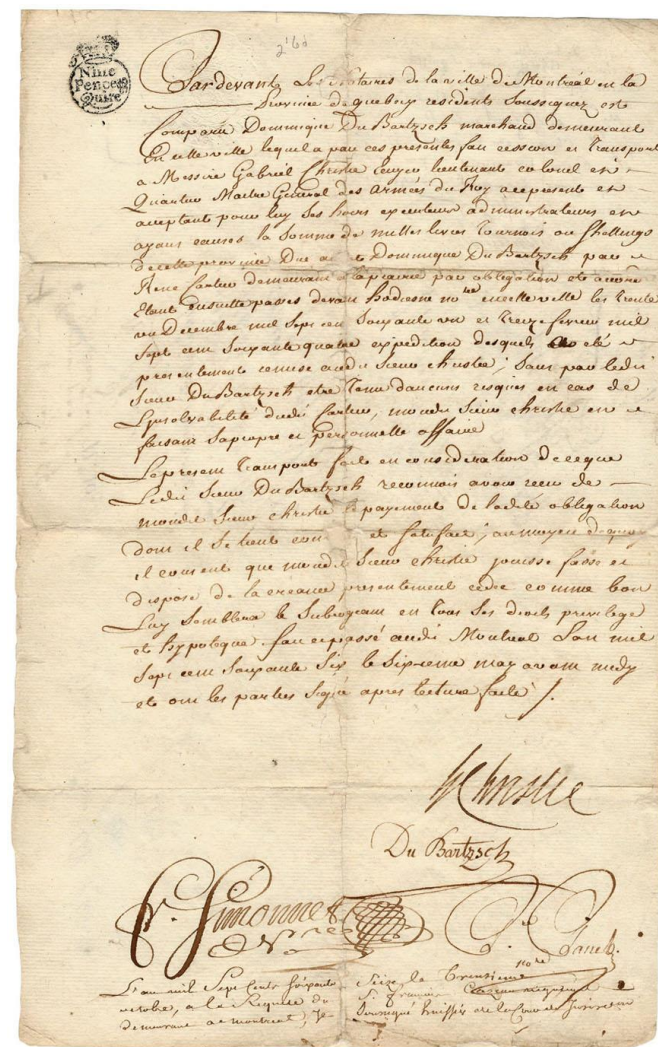 Nine
Pence
Quire
Pardevant Les Notaires de la ville de Montréal en la
Province de quebec residents Soussignez est
Comparu Dominique DuBartzsch marchand demeurant
En cette ville lequel a par ces presentes fait cession et Transport
a Messire Gabriel Christie Ecuyer lieutenant colonel et
Quartier Maitre General des armées du Roy a ce present et
acceptant pour luy Ses hoirs executeurs administrateurs et
ayans causes la Somme de milles livres Tournois ou Shellings
de cette province Due Dominique DuBartzsch par
René Cartier demeurant a Laprairie par obligation
Etant ensuitte passés devant hodiesne no.re en cette ville les Trente
un Decembre mil Sept cent Soixante un et Treize fevrier mil
Sept cent Soixante quatre expedition desquels été
presentement remise audit Sieur christie; Sans par ledit
Sieur DuBartzsch etre Tenu daucuns risques en cas de
L'insolvabilité dudit Cartier, mondit Sieur christie en
faisant Sa propre et personnelle affaire
Le present Transport fait en consideration de ce que
Ledit Sieur DuBartzsch reconnois avoir receu de
mondit Sieur christie le payement de ladite obligation
dont il Se tient con et Satisfait; au moyen de quoy
il consent que mondit Sieur christie jouisse fasse et
dispose de la creance presentement cedée comme bon
Luy Semblera le Subrogeant en tous Ses droits privilege
et hypoteque fait et passé audit Montreal Lan mil
Sept cent Soixante Six le Sixieme may avant midy
et ont les parties Signé apres lecture faite
Christie
Du Bartzsch
Simonnet
Panet
no.re
L'an mil Sept Cents Soixante Seize le Treizieme
octobre, a la Requete du Sr. françois Cazeau
demeurant a montreal, Je Soussigné huissier de la Cour